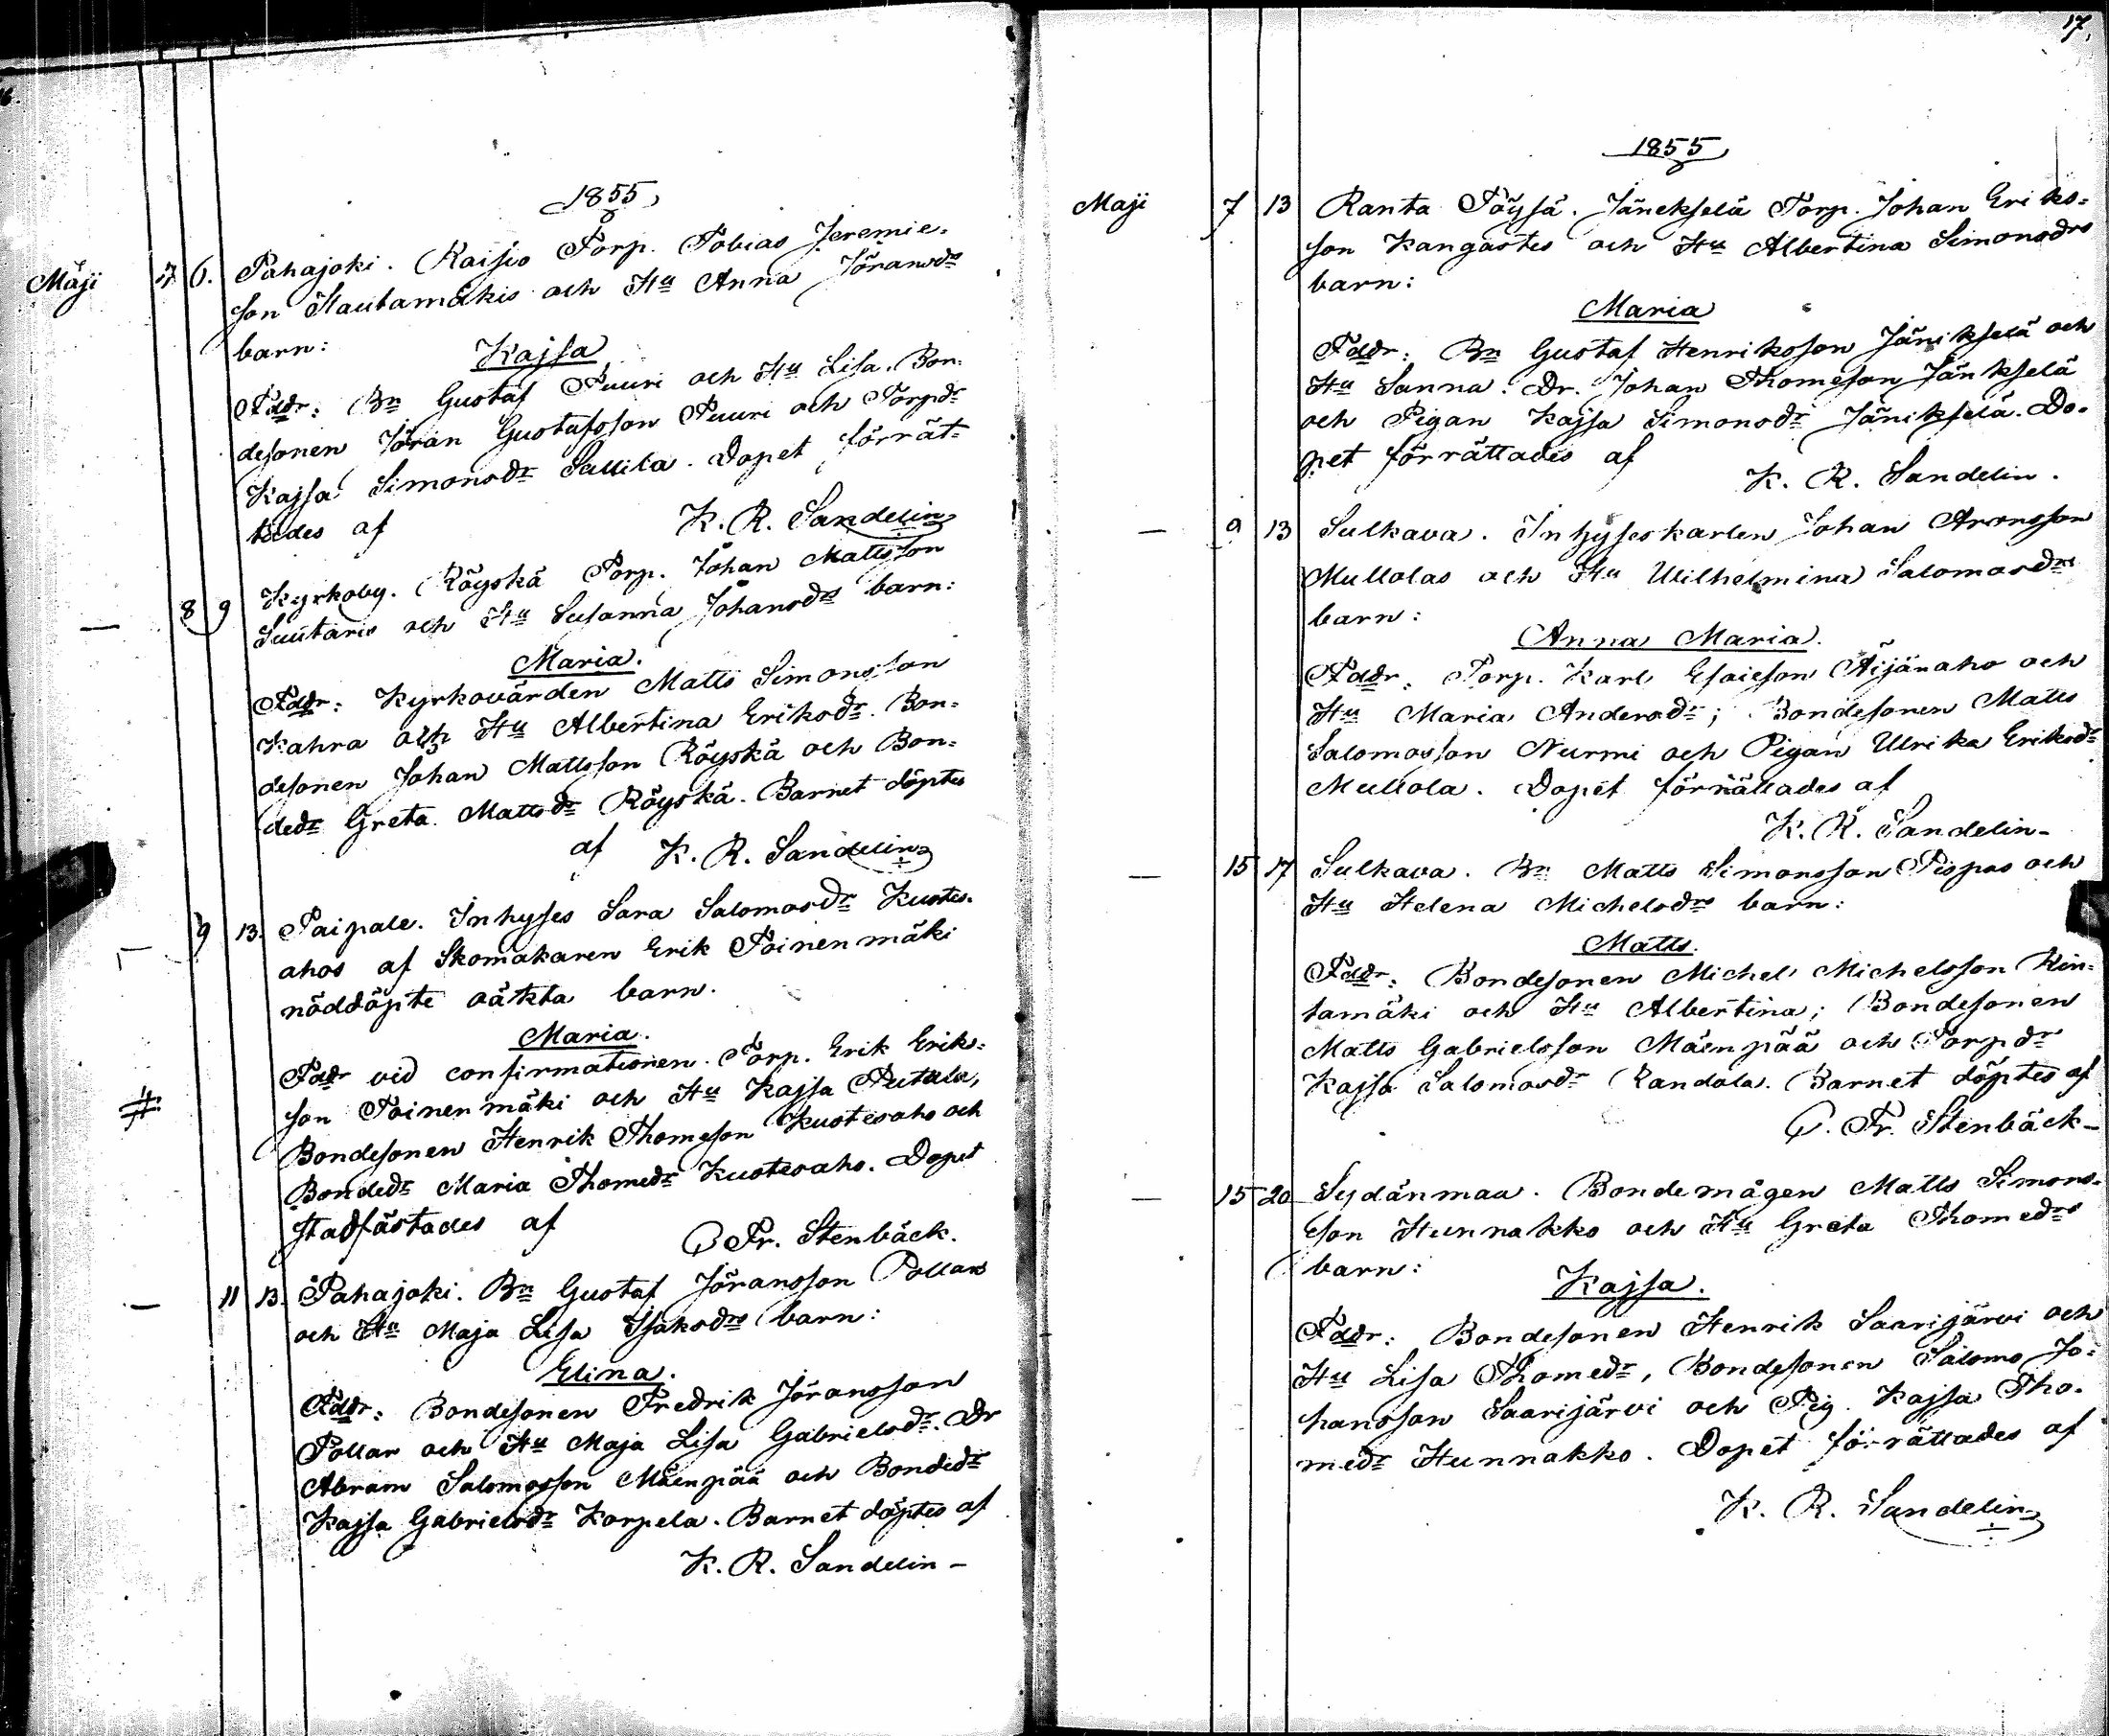 16.
1855
Maji 7 6. Pahajoki. Raisio Torp. Tobias Jeremie-
son Hautamäkis och Hu Anna Jöransdrs
barn:
Kajsa
Faddr: Bn Gustaf Tuuri och Hu Lisa. Bon-
desonen Jöran Gustafsson Tuuri och Torpdr
Kajsa Simonsdr Sallila. Dopet förrät-
tades af
K. R. Sandelin
— 8 9 Kyrkoby. Röyskä Torp. Johan Mattsson
Suutaris och Hu Susanna Johansdrs barn:
Maria.
Faddr: Kyrkovärden Matts Simonsson
Kahra och Hu Albertina Eriksdr. Bon-
desonen Johan Mattsson Röyskä och Bon-
dedr Greta Mattsdr Röyskä. Barnet döptes
af K. R. Sandelin
— 9 13. Paipale. Inhyses Sara Salomosdr Kustes-
ahos af Skomakaren Erik Toinenmäki
nöddöpte oäkta barn.
Maria.
Faddr vid confirmationen. Torp. Erik Eriks-
son Toinenmäki och Hu Kajsa Putula,
# Bondesonen Henrik Thomeson Kustesaho och
Bondedr Maria Thomedr Kustesaho. Dopet
stadfästades af
C Fr. Stenbäck.
— 11 13. Pahajoki. Bn Gustaf Jöransson Pollars
och Hu Maja Lisa Isaksdrs barn:
Elina.
Faddr: Bondesonen Fredrik Jöransson
Pollar och Hu Maja Lisa Gabrielsdr. Dr
Abram Salomosson Mäenpää och Bondedr
Kajsa Gabrielsdr Korpela. Barnet döptes af
K. R. Sandelin –
17.
1855
Maji 7 13 Ranta Töysä. Jänekselä Torp. Johan Eriks-
son Kangastes och Hu Albertina Simonsdrs
barn:
Maria
Faddr: Bn Gustaf Henriksson Jänikselä och
Hu Sanna. Dr. Johan Thomeson Jänkselä
och Pigan Kajsa Simonsdr Jänikselä. Do-
pet förrättades af
K. R. Sandelin.
— 9 13 Sulkava. Inhyseskarlen Johan Aronsson
Mullolas och Hu Wilhelmina Salomosdrs
barn:
Anna Maria.
Faddr: Torp. Karl Esaieson Äijänaho och
Hu Maria Andersdr; Bondesonen Matts
Salomosson Nurmi och Pigan Ulrika Eriksdr
Mullola. Dopet förrättades af
K. R. Sandelin –
— 15 17 Sulkava. Bn Matts Simonsson Pispas och
Hu Helena Michelsdrs barn:
Matts.
Faddr: Bondesonen Michel Michelsson Rin-
tamäki och Hu Albertina; Bondesonen
Matts Gabrielsson Mäenpää och Torpdr
Kajsa Salomosdr Randala. Barnet döptes af
C. Fr. Stenbäck –
— 15 20 Sydänmaa. Bondemågen Matts Simons-
son Hunnakko och Hu Greta Thomedrs
barn:
Kajsa.
Faddr: Bondesonen Henrik Saarijärvi och
Hu Lisa Thomedr, Bondesonen Salomo Jo-
hansson Saarijärvi och Pig. Kajsa Tho-
medr Hunnakko. Dopet förrättades af
K. R. Sandelin